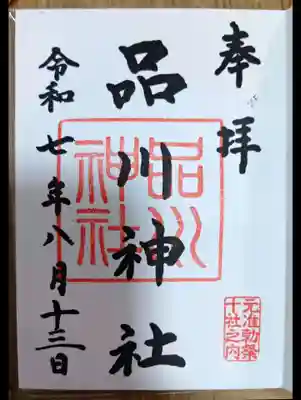 奉拝
品川神社
品川神社
元准勅祭
十社之内
令和七年八月十三日